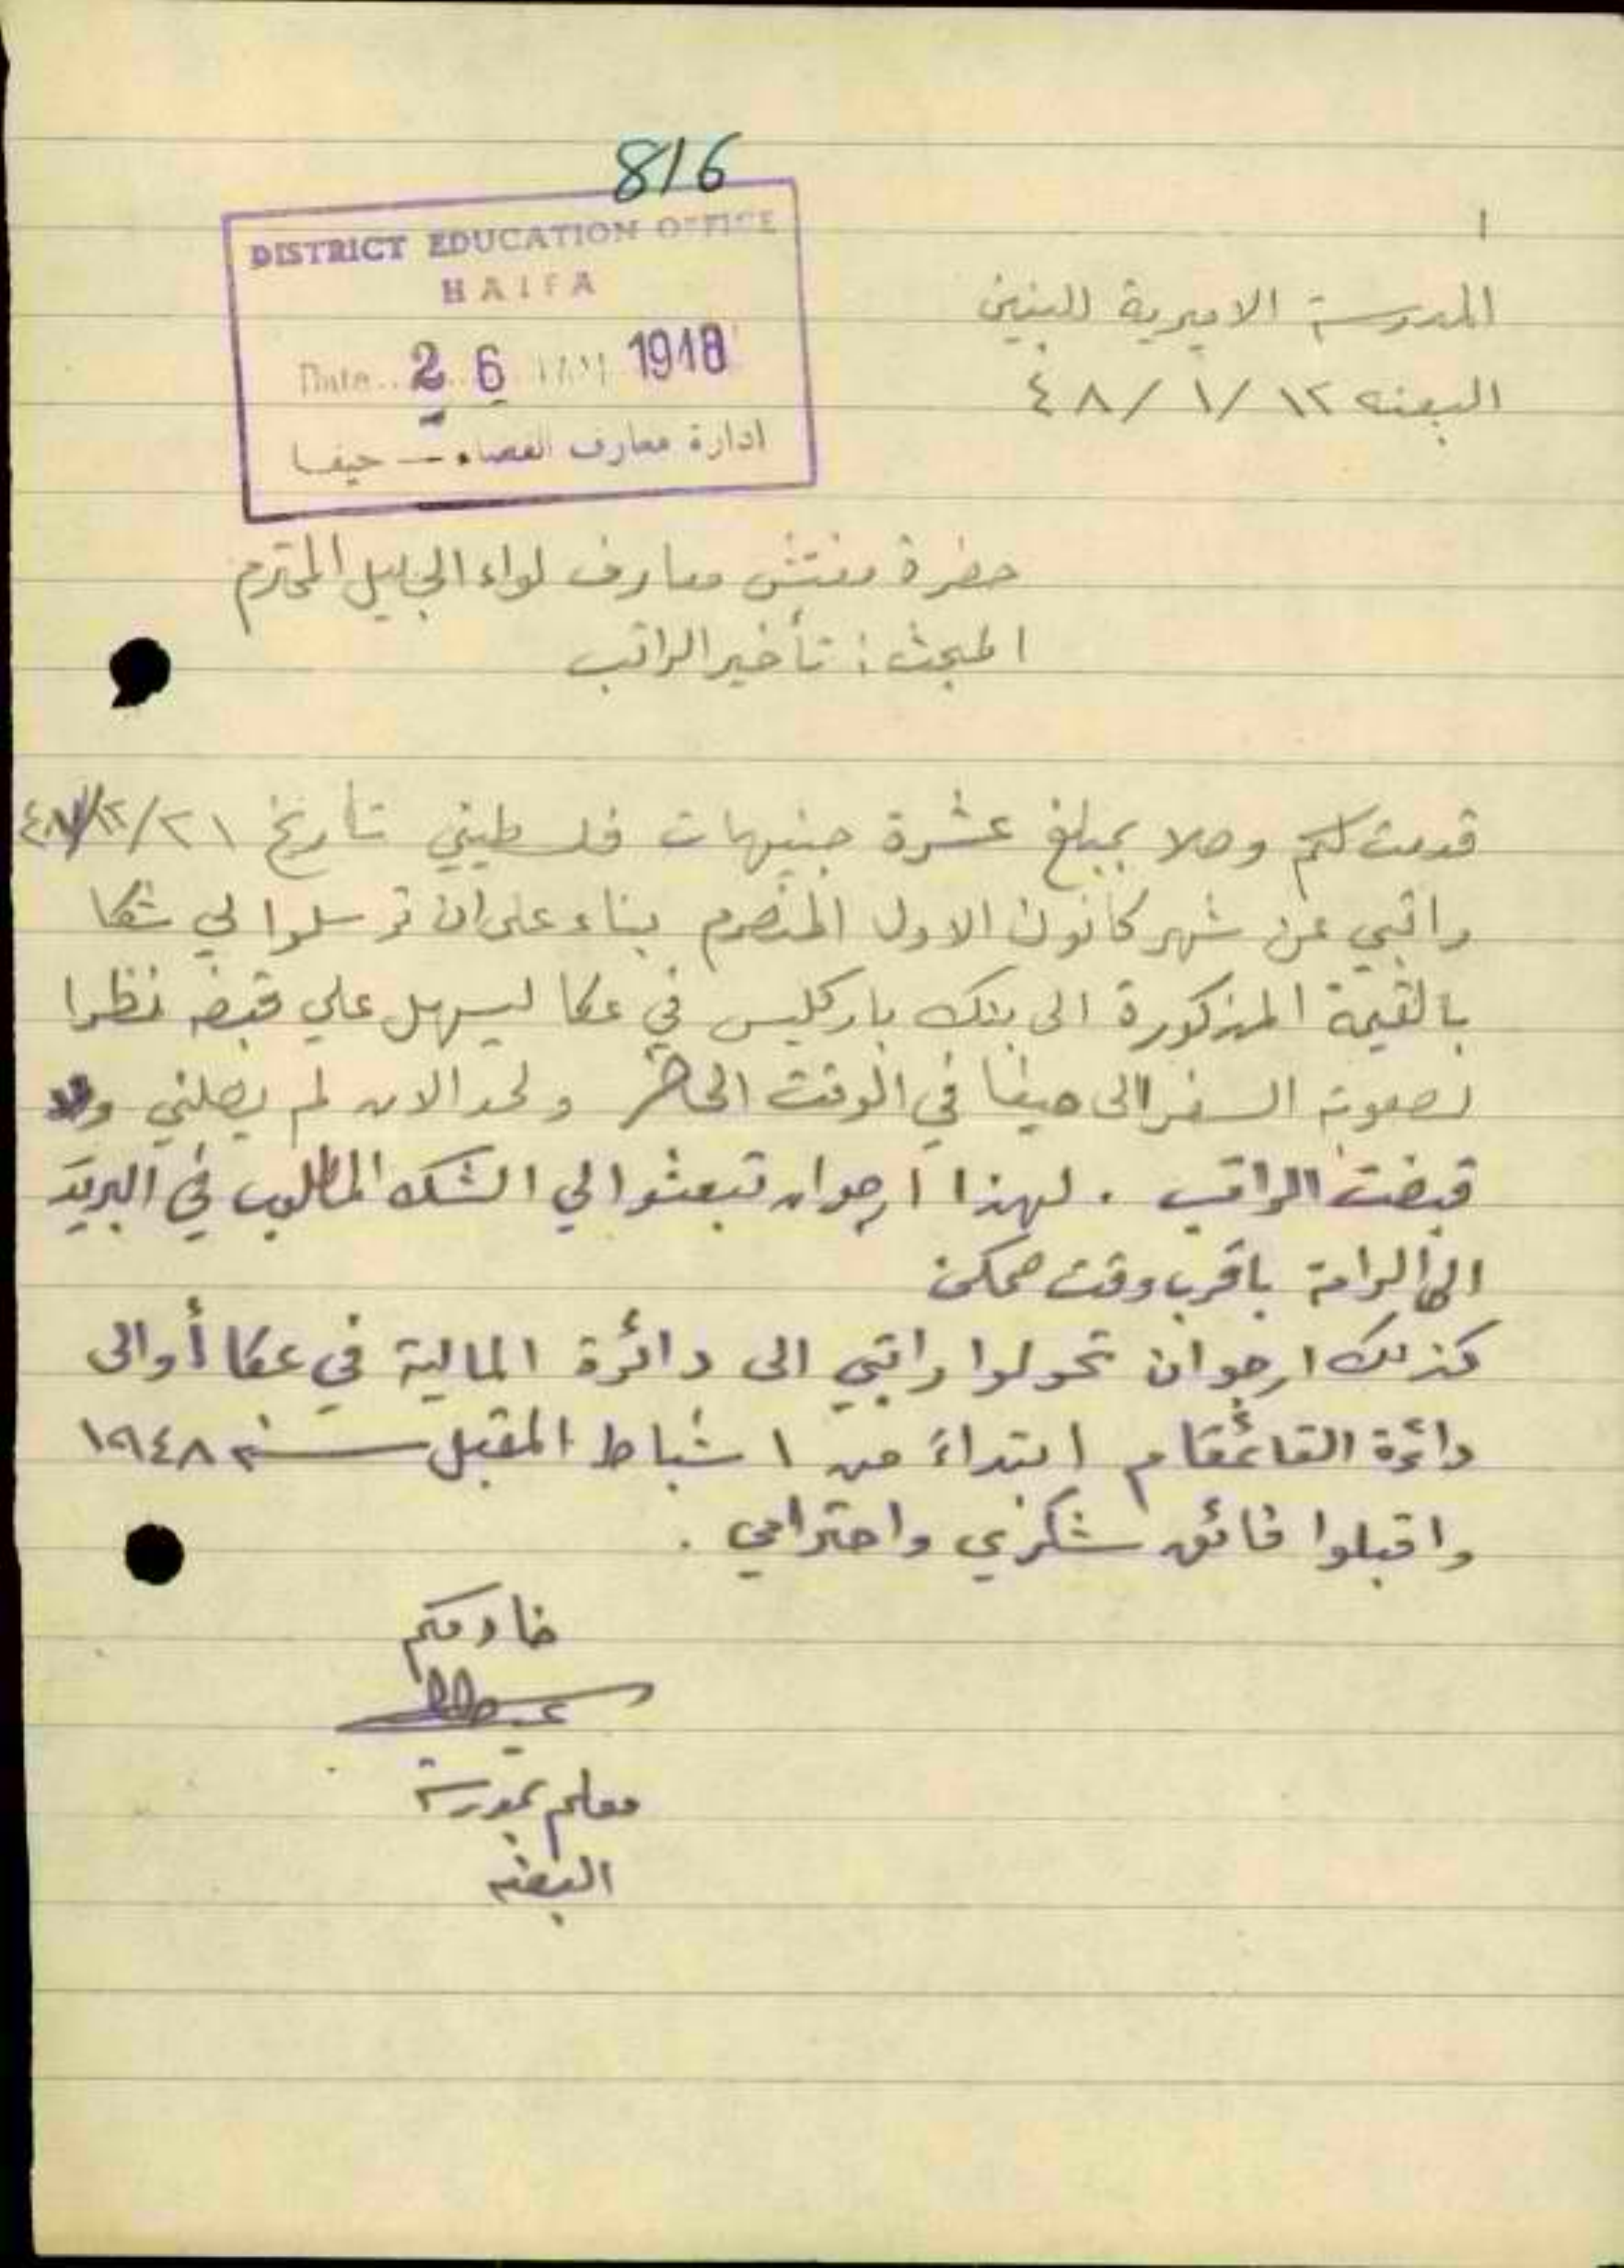 816
DISTRICT EDUCATION OFFICE
HAIFA
Date.. 26 JAN 1948
ادارة معارف القضاء - حيفا
المدرسة الاميرية للبنين
البعنه ١٢ /١ /٤٨
حضرة مفتش معارف لواء الجليل المحترم
المبحث : تأخير الراتب
قدمت لكم وصلا بمبلغ عشرة جنيهات فلسطيني تأريخ ٢١/١٢/
راتبي عن شهر كانون الاول المنصرم بناء على ان ترسلوا لي شكا
بالقيمة المذكورة الى بنك باركليس في عكا ليسهل علي قبضه نظرا
لصعوبة السفر الى حيفا في الوقت الحاضر ولحد الان لم يصلني ولا
قبضت الراتب . لهذا ارجو ان تبعثوا لي الشك المطلوب في البريد
الى الرامة باقرب وقت ممكن
كذلك ارجو ان تحولوا راتبي الى دائرة المالية في عكا أو الى
دائرة القائمقام ابتداءً من ١ شباط المقبل سنه ١٩٤٨
واقبلوا فائق شكري واحترامي .
خادمكم
معلم بمدرسة
البعنه